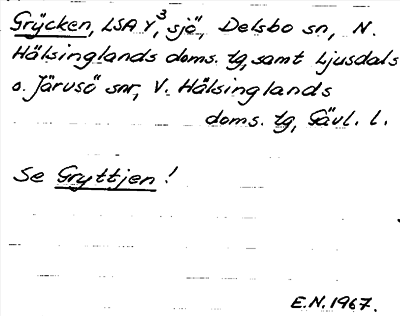 Grycken, LSA Y³, sjö, Delsbo sn, N.
Hälsinglands doms. tg, samt Ljusdals
o. Järvsö snr, V. Hälsinglands
doms. tg, Gävl. l.
Se Gryttjen!
E.N. 1967.